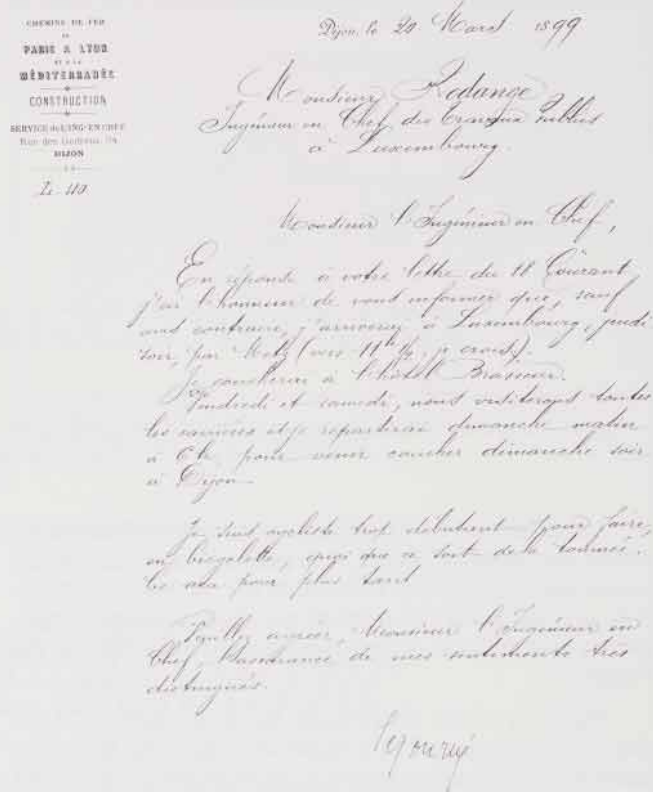 CHEMINS DE FER
DE
PARIS A LYON
ET A LA
MÉDITERRANÉE
CONSTRUCTION
SERVICE de L'ING. EN CHEF
Rue des
DIJON
Dijon, le 20 Mars 1899
Monsieur Rodange
Ingénieur en Chef des Travaux Publics
à Luxembourg.
Monsieur l'Ingénieur en Chef,
En réponse à votre lettre du 18 Courant
j'ai l'honneur de vous informer que, sauf
avis contraire, j'arriverai à Luxembourg, jeudi
soir, par Metz (vers 11h ½, je crois).
Je coucherai à l'hôtel Brasseur.
Vendredi et samedi, nous visiterons toutes
les carrières et je repartirai dimanche matin
à 6h pour venir coucher dimanche soir
à Dijon.
Je suis cycliste trop débutant pour faire,
en bicyclette, quoi que ce soit de la tournée.
Ce sera pour plus tard
Veuillez agréer, Monsieur l'Ingénieur en
Chef, l'assurance de mes sentiments très
distingués.
Séjourné